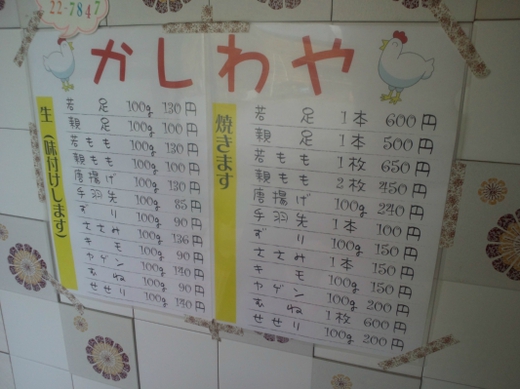 22-7847
かしわや
生(味付けします)
若足 100g 130円
親足 100g 100円
若もも 100g 130円
親もも 100g 100円
唐揚げ 100g 130円
手羽先 100g 85円
ずり 100g 90円
ささみ 100g 136円
キモ 100g 90円
ヤゲン 100g 140円
むね 100g 90円
せせり 100g 140円
焼きます
若足 1本 600円
親足 1本 500円
若もも 1枚 650円
親もも 2枚 450円
唐揚げ 100g 240円
手羽先 1本 100円
ずり 100g 150円
ささみ 1本 150円
キモ 100g 150円
ヤゲン 100g 200円
むね 1枚 600円
せせり 100g 200円